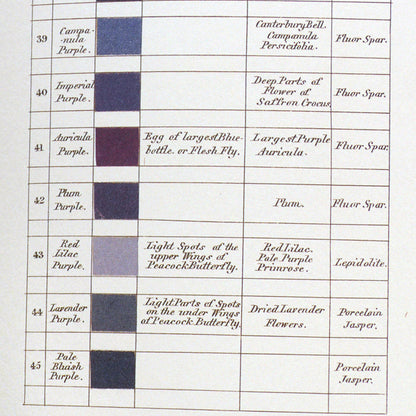 39 Campa- Canterbury Bell.
-nula Campanula Fluor Spar.
Purple. Persicifolia.
40 Imperial Deep Parts of
Purple. Flower of Fluor Spar.
Saffron Crocus.
41 Auricula Egg of largest Blue- Largest Purple Fluor Spar.
Purple. bottle. or Flesh Fly. Auricula.
42 Plum Plum. Fluor Spar.
Purple.
43 Red Light Spots of the Red Lilac.
Lilac upper Wings of Pale Purple Lepidolite.
Purple. Peacock Butterfly. Primrose.
44 Lavender Light Parts of Spots Dried Lavender Porcelain
Purple. on the under Wings Flowers. Jasper.
of Peacock Butterfly.
45 Pale Porcelain
Bluish Jasper.
Purple.